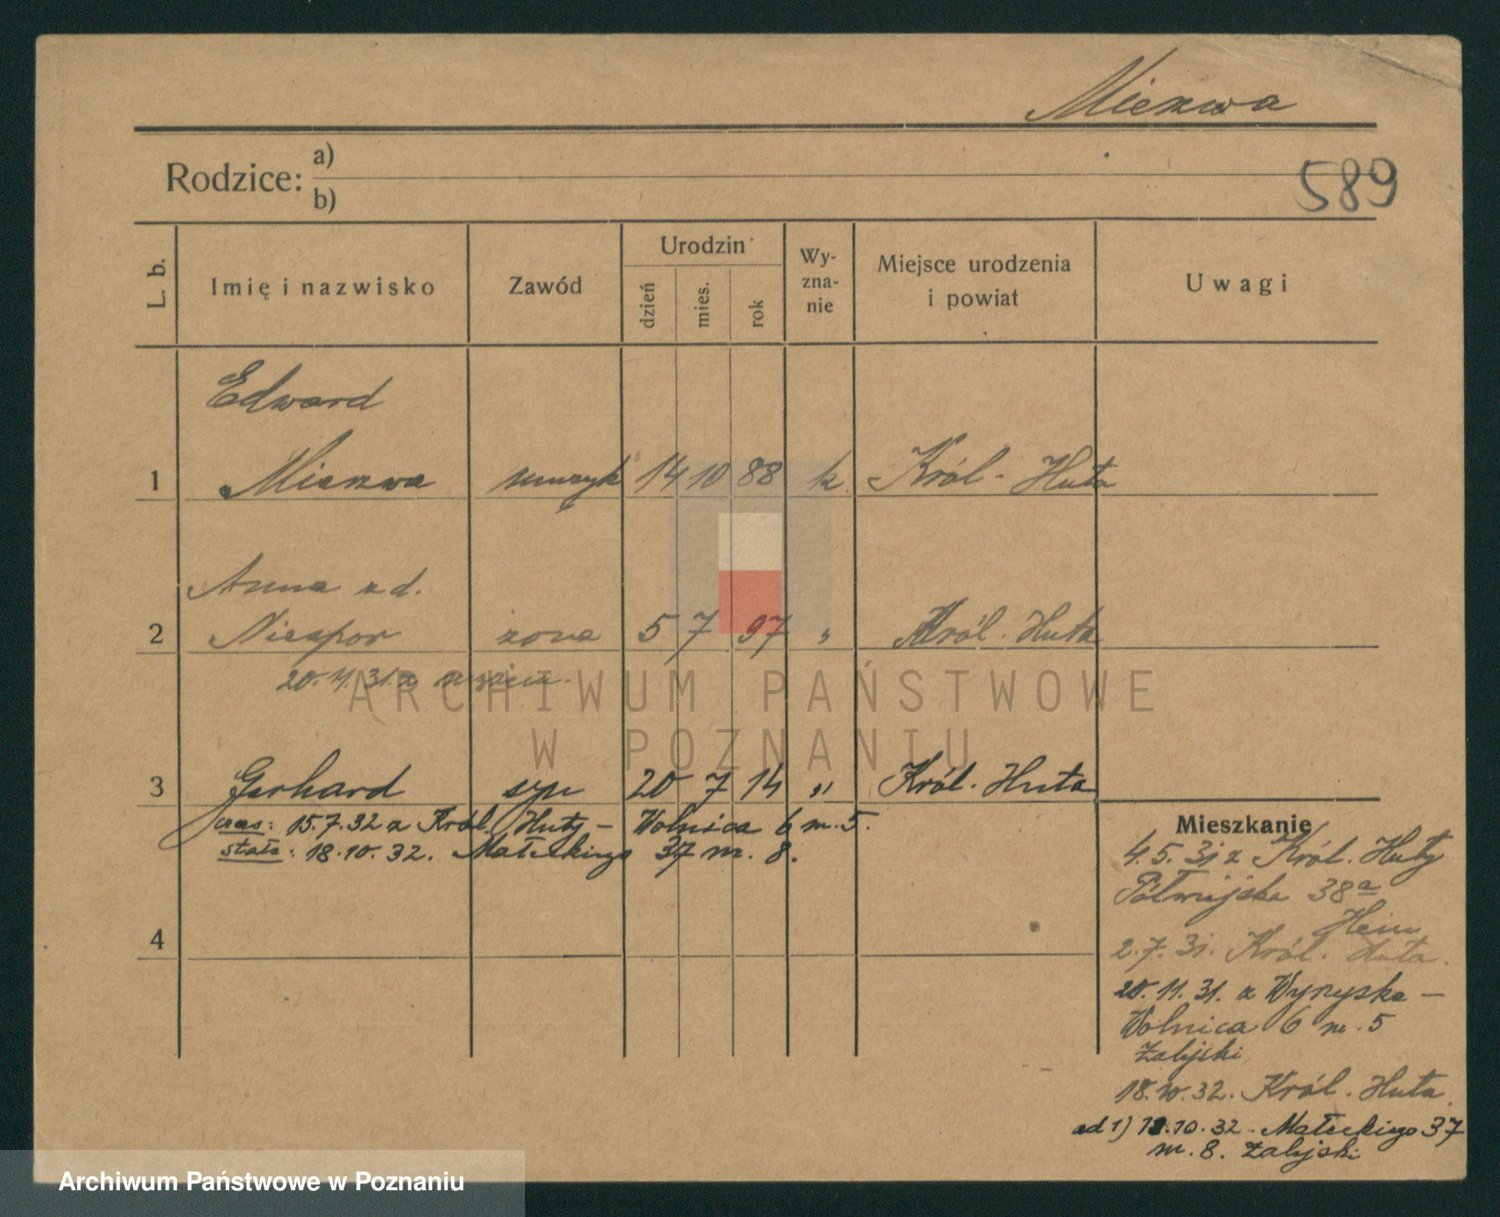 Mierwa
589
Rodzice: a)
b)
L. b.
Imię i nazwisko
Zawód
Urodzin
dzień
mies.
rok
Wy-
zna-
nie
Miejsce urodzenia
i powiat
Uwagi
Edward
1 Mierwa muzyk 14 10 88 k Król. Huta
Anna z d.
2 Niespor żona 5 7 97 " Król. Huta
20.11.31. z
3 Gerhard syn 20 7 14 " Król. Huta
czas: 15.7.32 z Król. Huty – Wolnica 6 m. 5.
stale: 18.10.32. Małeckiego 37 m. 8.
4
Mieszkanie
4.5.31 z Król. Huty
Półwiejska 38a
Hein
2.7.31. Król. Huta.
20.11.31. z Wyryska –
Wolnica 6 m. 5
Żalijski
18.10.32. Król. Huta.
ad 1) 18.10.32 - Małeckiego 37
m. 8. Żalijski
ARCHIWUM PAŃSTWOWE
W POZNANIU
Archiwum Państwowe w Poznaniu